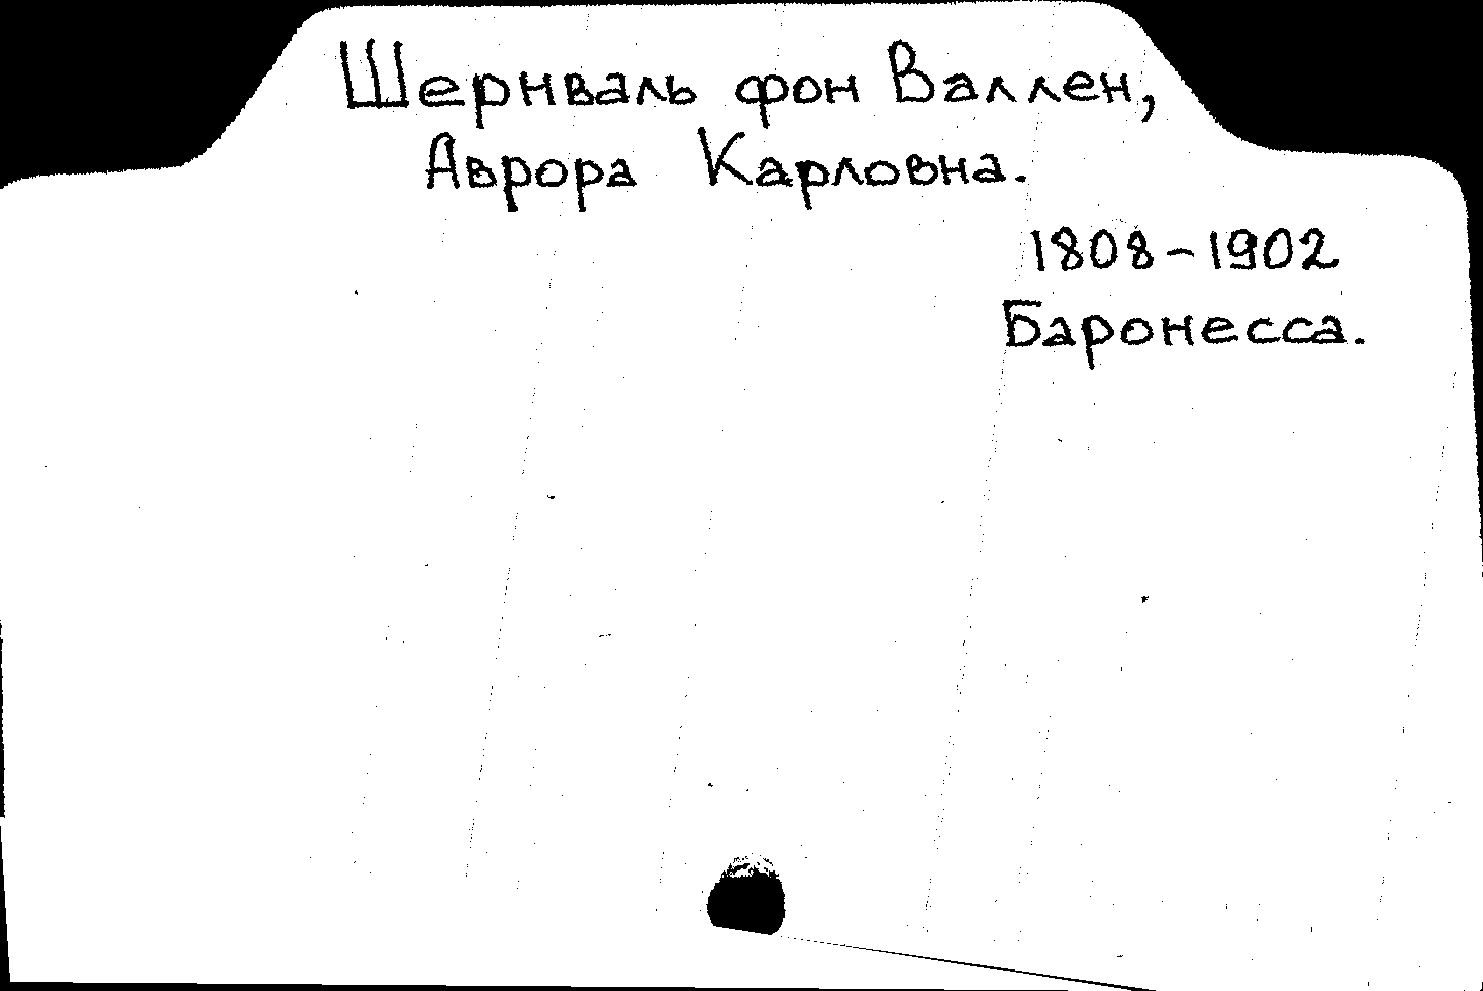 Шернваль фон Валлен,
Аврора Карловна.
1808-1902
Баронесса.